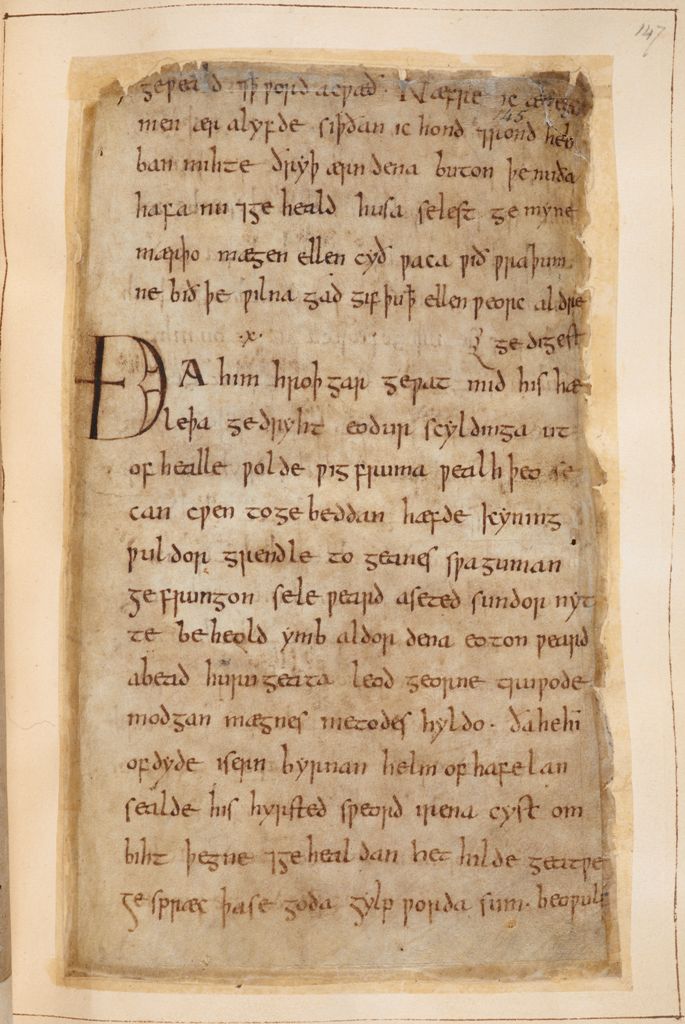 147
geƿeald ⁊ ꝥ ƿord acƿæð. Næfre ic ænegū
145
men ær alyfde siþðan ic hond ⁊ rond heb
ban mihte ðryþ ærn dena buton þe nu ða
hafa nu ⁊ ge heald husa selest ge myne
mærþo mægen ellen cyð ƿaca ƿið ƿraþum
ne bið þe ƿilna gad gif þu ꝥ ellen ƿeorc aldre
·x· ge digest
ÐA him hroþgar geƿat mid his hæ
leþa ge dryht eodur scyldinga ut
of healle ƿolde ƿig fruma ƿealhþeo se
can cƿen to ge beddan hæfde kyning
ƿuldor grendle to geanes sƿa guman
ge frungon sele ƿeard aseted sundor nyt
te be heold ymb aldor dena eoton ƿeard
abead huru geata leod georne truƿode
modgan mægnes metodes hyldo. ða he hī
of dyde isern byrnan helm of hafelan
sealde his hyrsted sƿeord irena cyst om
biht þegne ⁊ ge healdan het hilde geatƿe
ge spræc þa se goda gylp ƿorda sum. beoƿulf